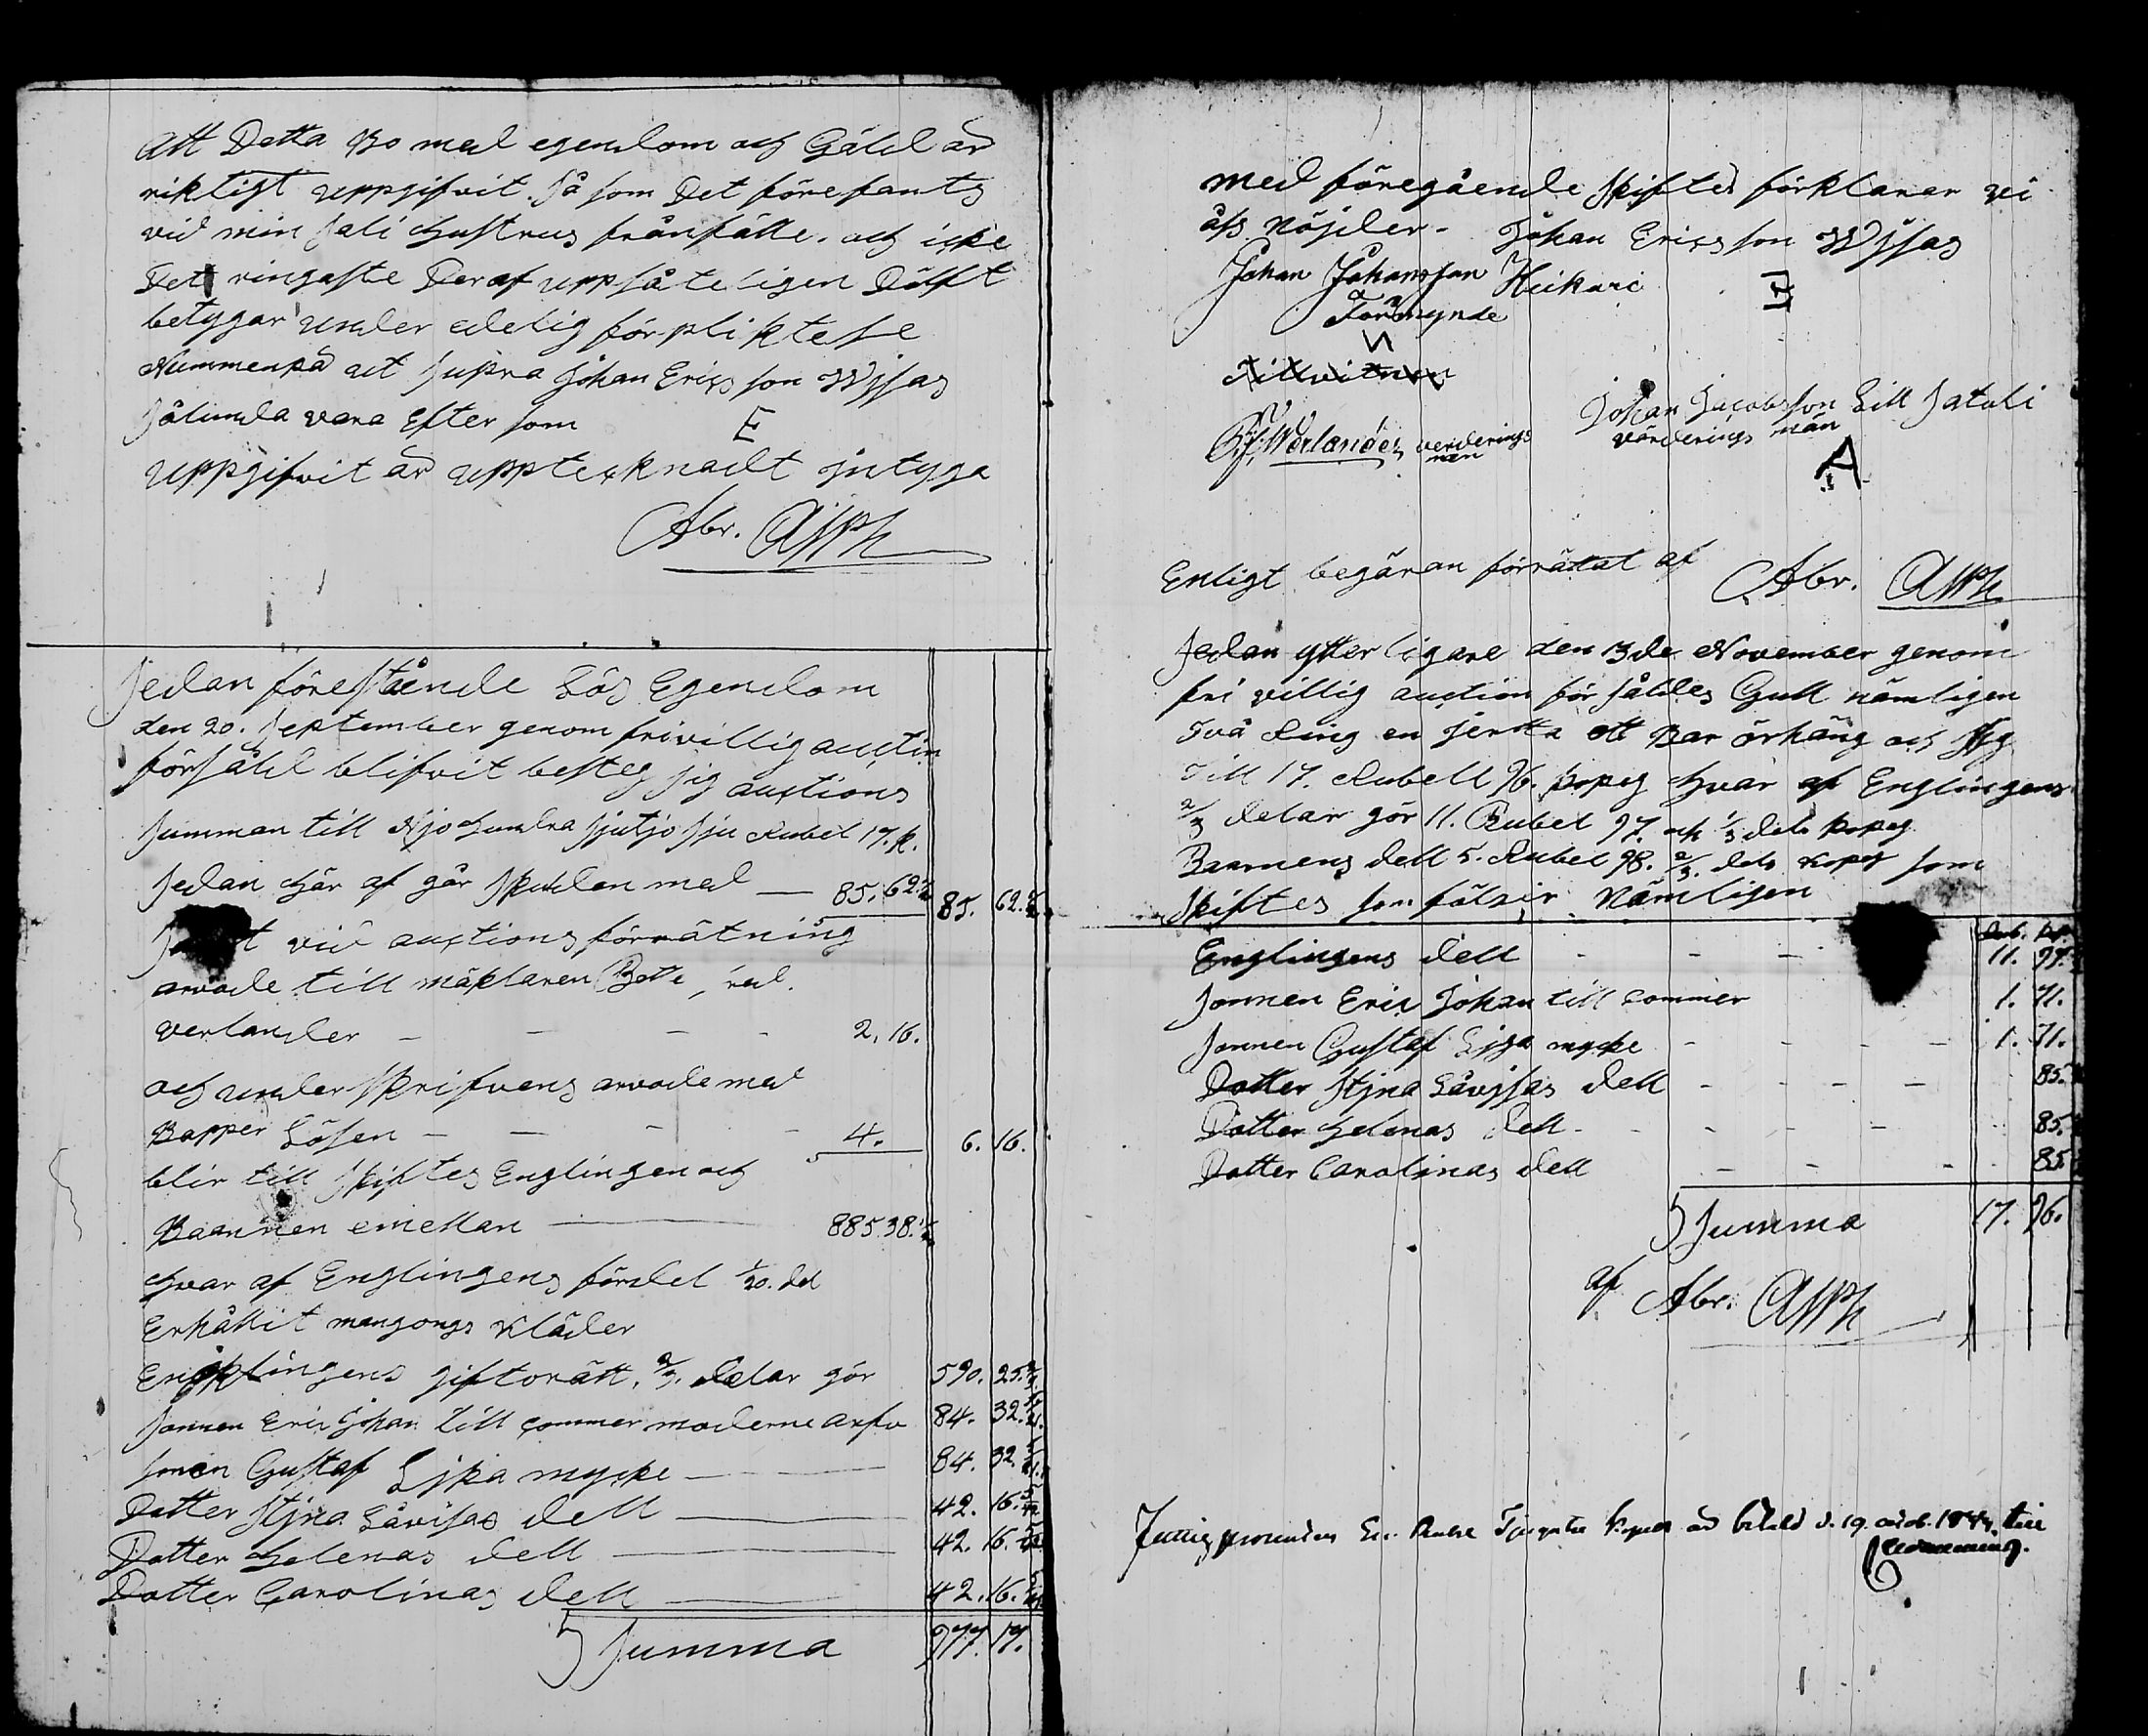 Att Detta Bo med egendom och Gäld är
riktigt uppgifvit. så som Det förefants
vid min Sali Hustrus frånfälle. och icke
Det ringaste Deraf uppsåteligen Dölst
betygar under edelig förpliktelse
Nummenpä ut supra Johan Ericsson Wjsas
sålunda vara Efter som E
uppgifvit är upptecknadt intyga
Abr. Asph
Sedan förestående Lös Egendom
den 20. September genom frivillig auctin
försåld blifvit besteg sig auctions
summan till Njo Hundra sjutjo sju Rubel 17. k.
Sedan här af går skulden med — 85. 62. 85. 62.
vid auctions förrätning
arvode till mäklaren
verlander - - - - 2. 16.
och underskrifvens arvode med
Bapper Lösen - - - - 4. 6. 16.
blir till skiftes Englingen och
Baarnen emellan — 885 38. 1/2
Hvar af Englingens fördel 1/20. del
Erhållit mangongs kläder
Englingens giftorätt, 2/3. delar gör 590. 25. 2/3.
Sonnen Eric Johan till commer moderne arfv 84. 32.
sonen Gustaf Ljka mycke — 84. 32.
Dotter Stjna Låvisas dell — 42. 16.
Dotter Helenas dell — 42. 16.
Dotter Carolinas dell — 42. 16.
Summa 977. 17.
med föregående skiftes förklarar vi
åss nöjder. Johan Ericsson Wjsas
Johan Johansson Heikari E
Förmynde
Till vitnen
Johan Jacobsson Lill Jatuli
Werlander verderings värderings män
män A
Enligt begäran förrätat af Abr. Asph
Sedan ytterligare den 13de November genom
fri villig auction försåldes Gull nämligen
Två Ring en Jertta ett Par örhäng och
Till 17. Rubell 96. kopeg Hvar af Englingens
2/3 delar gör 11. Rubel 97. och 1/3 dels kopeg
Baarnens dell 5. Rubel 98. 2/3. dels kopeg som
Skiftes som fölier Nämligen
Rub. kop.
Englingens dell - - - 11. 97.
Sonnen Eric Johan till commer 1. 71.
Sonnen Gustaf Ljga mycke - - - 1. 71.
Dotter Stjna Låvjsas dell - - - - 85.
Dotter Helenas dell - - - - 85.
Dotter Carolinas dell - - - 85.
Summa 17. 96.
af Abr. Asph
Fattigprocenten En Rubel Kopek är betald d. 19. 1844. till